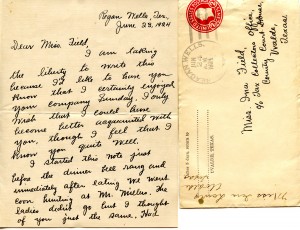 Rogan Wells, Tex.
June 23, 1924
Dear Miss Field,
I am taking
the liberty to write this
because I'd like to have you
know that I certainly enjoyed
your company Sunday. I only
wish that I could have
become better acquainted with
you, though I feel that I
know you quite well.
I started this note just
before the dinner bell rang and
immediately after eating we went
coon hunting as Mr. Miller. The
ladies didn't go but I thought
of you just the same. Had
Miss Ina Field,
% Tax Collectors Office,
County Court House,
Uvalde,
Texas
UVALDE, TEXAS